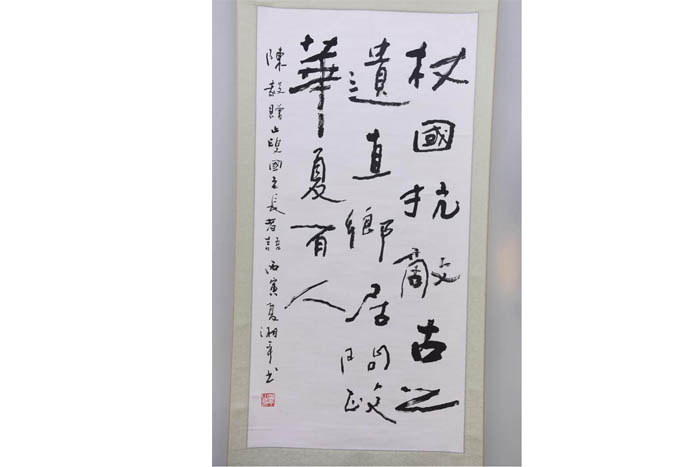 杖國抗敵古之
遺直鄉居問政
華夏有人
陳毅贈止叟國長者語 丙寅夏湘平书